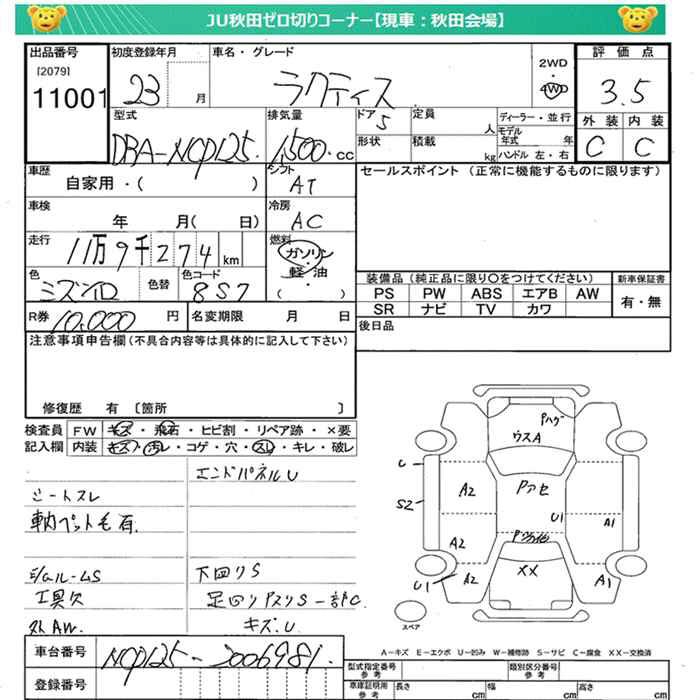 JU秋田ゼロ切りコーナー【現車：秋田会場】
出品番号 初度登録年月 車名・グレード 評価点
[2079]
11001 23 月 ラクティス 2WD 4WD 3.5
型式 排気量 ドア 5 定員 人 ディーラー・並行 外装 内装
DBA-NCP125. 1,500.cc 形状 積載 kg モデル年式 年 ハンドル 左・右 C C
車歴 シフト セールスポイント（正常に機能するものに限ります）
自家用・（ ） AT
車検 冷房
年 月（ 日） AC
走行 燃料
11万9千274km ガソリン
軽油
・
（ ）
色 色替 色コード 装備品（純正品に限り○をつけてください） 新車保証書
ミズイロ 8S7 PS PW ABS エアB AW 有・無
SR ナビ TV カワ
R券 10,000 円 名変期限 月 日 後日品
注意事項申告欄（不具合内容等は具体的に記入して下さい）
修復歴 有 〔箇所 〕
検査員 FW キズ・飛石・ヒビ割・リペア跡・×要
記入欄 内装 キズ・汚レ・コゲ・穴・スレ・キレ・破レ
エンドパネルU
シートスレ
車内ペット毛有.
下回りS
工具欠
外AW.
キズ.U
Pハゲ
ウスA
U
A2
Pアセ
S2
U1
A1
A2
XX
U1
A2
A1
スペア
車台番号 NCP125-2006981.
登録番号
A－キズ E－エクボ U－凹み W－補修跡 S－サビ C－腐食 XX－交換済
型式指定番号 参考 類別区分番号 参考
車庫証明用 参考 長さ cm 幅 cm 高さ cm